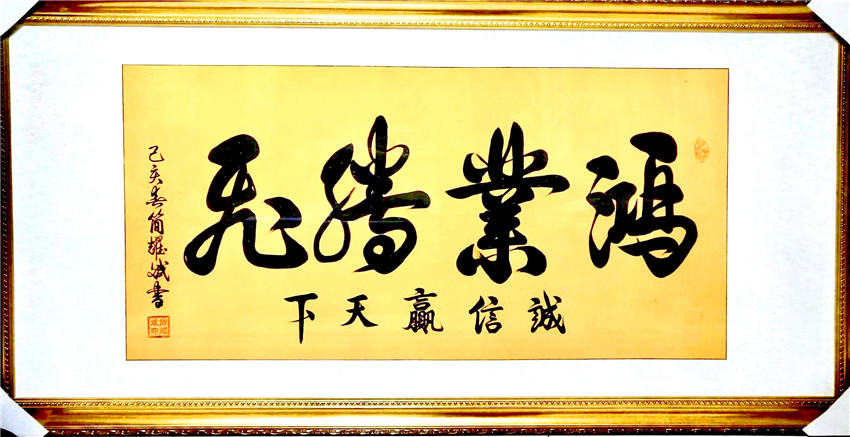 鴻業騰飛
誠信贏天下
己亥春簡耀斌書